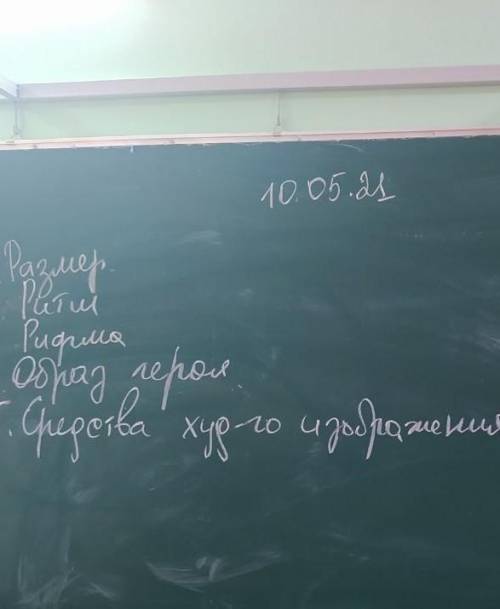 10.05.21
Размер.
Ритм
Рифма
Образ героя.
. Средства худ-го изображения